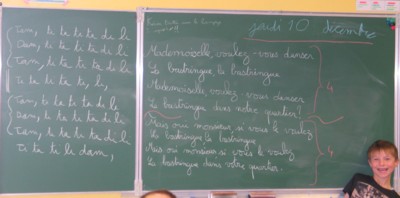 Tam, ti ta ti ta di la
Dam, ti ta ti ta di la
Tam, ti ta ti ta di la
Ti ta ti ta ti, li,
Tam, ti ta ti ta di la
Dam, ti ta ti ta di la
Tam, ti ta ti ta di la
Ti ta ti li dam,
jeudi 10 décembre
Mademoiselle, voulez-vous danser
La bastringue, la bastringue
Mademoiselle, voulez-vous danser
La bastringue dans notre quartier?
4
Mais oui monsieur si vous le voulez
La bastringue la bastringue
Mais oui monsieur si vous le voulez
La bastringue dans votre quartier.
4